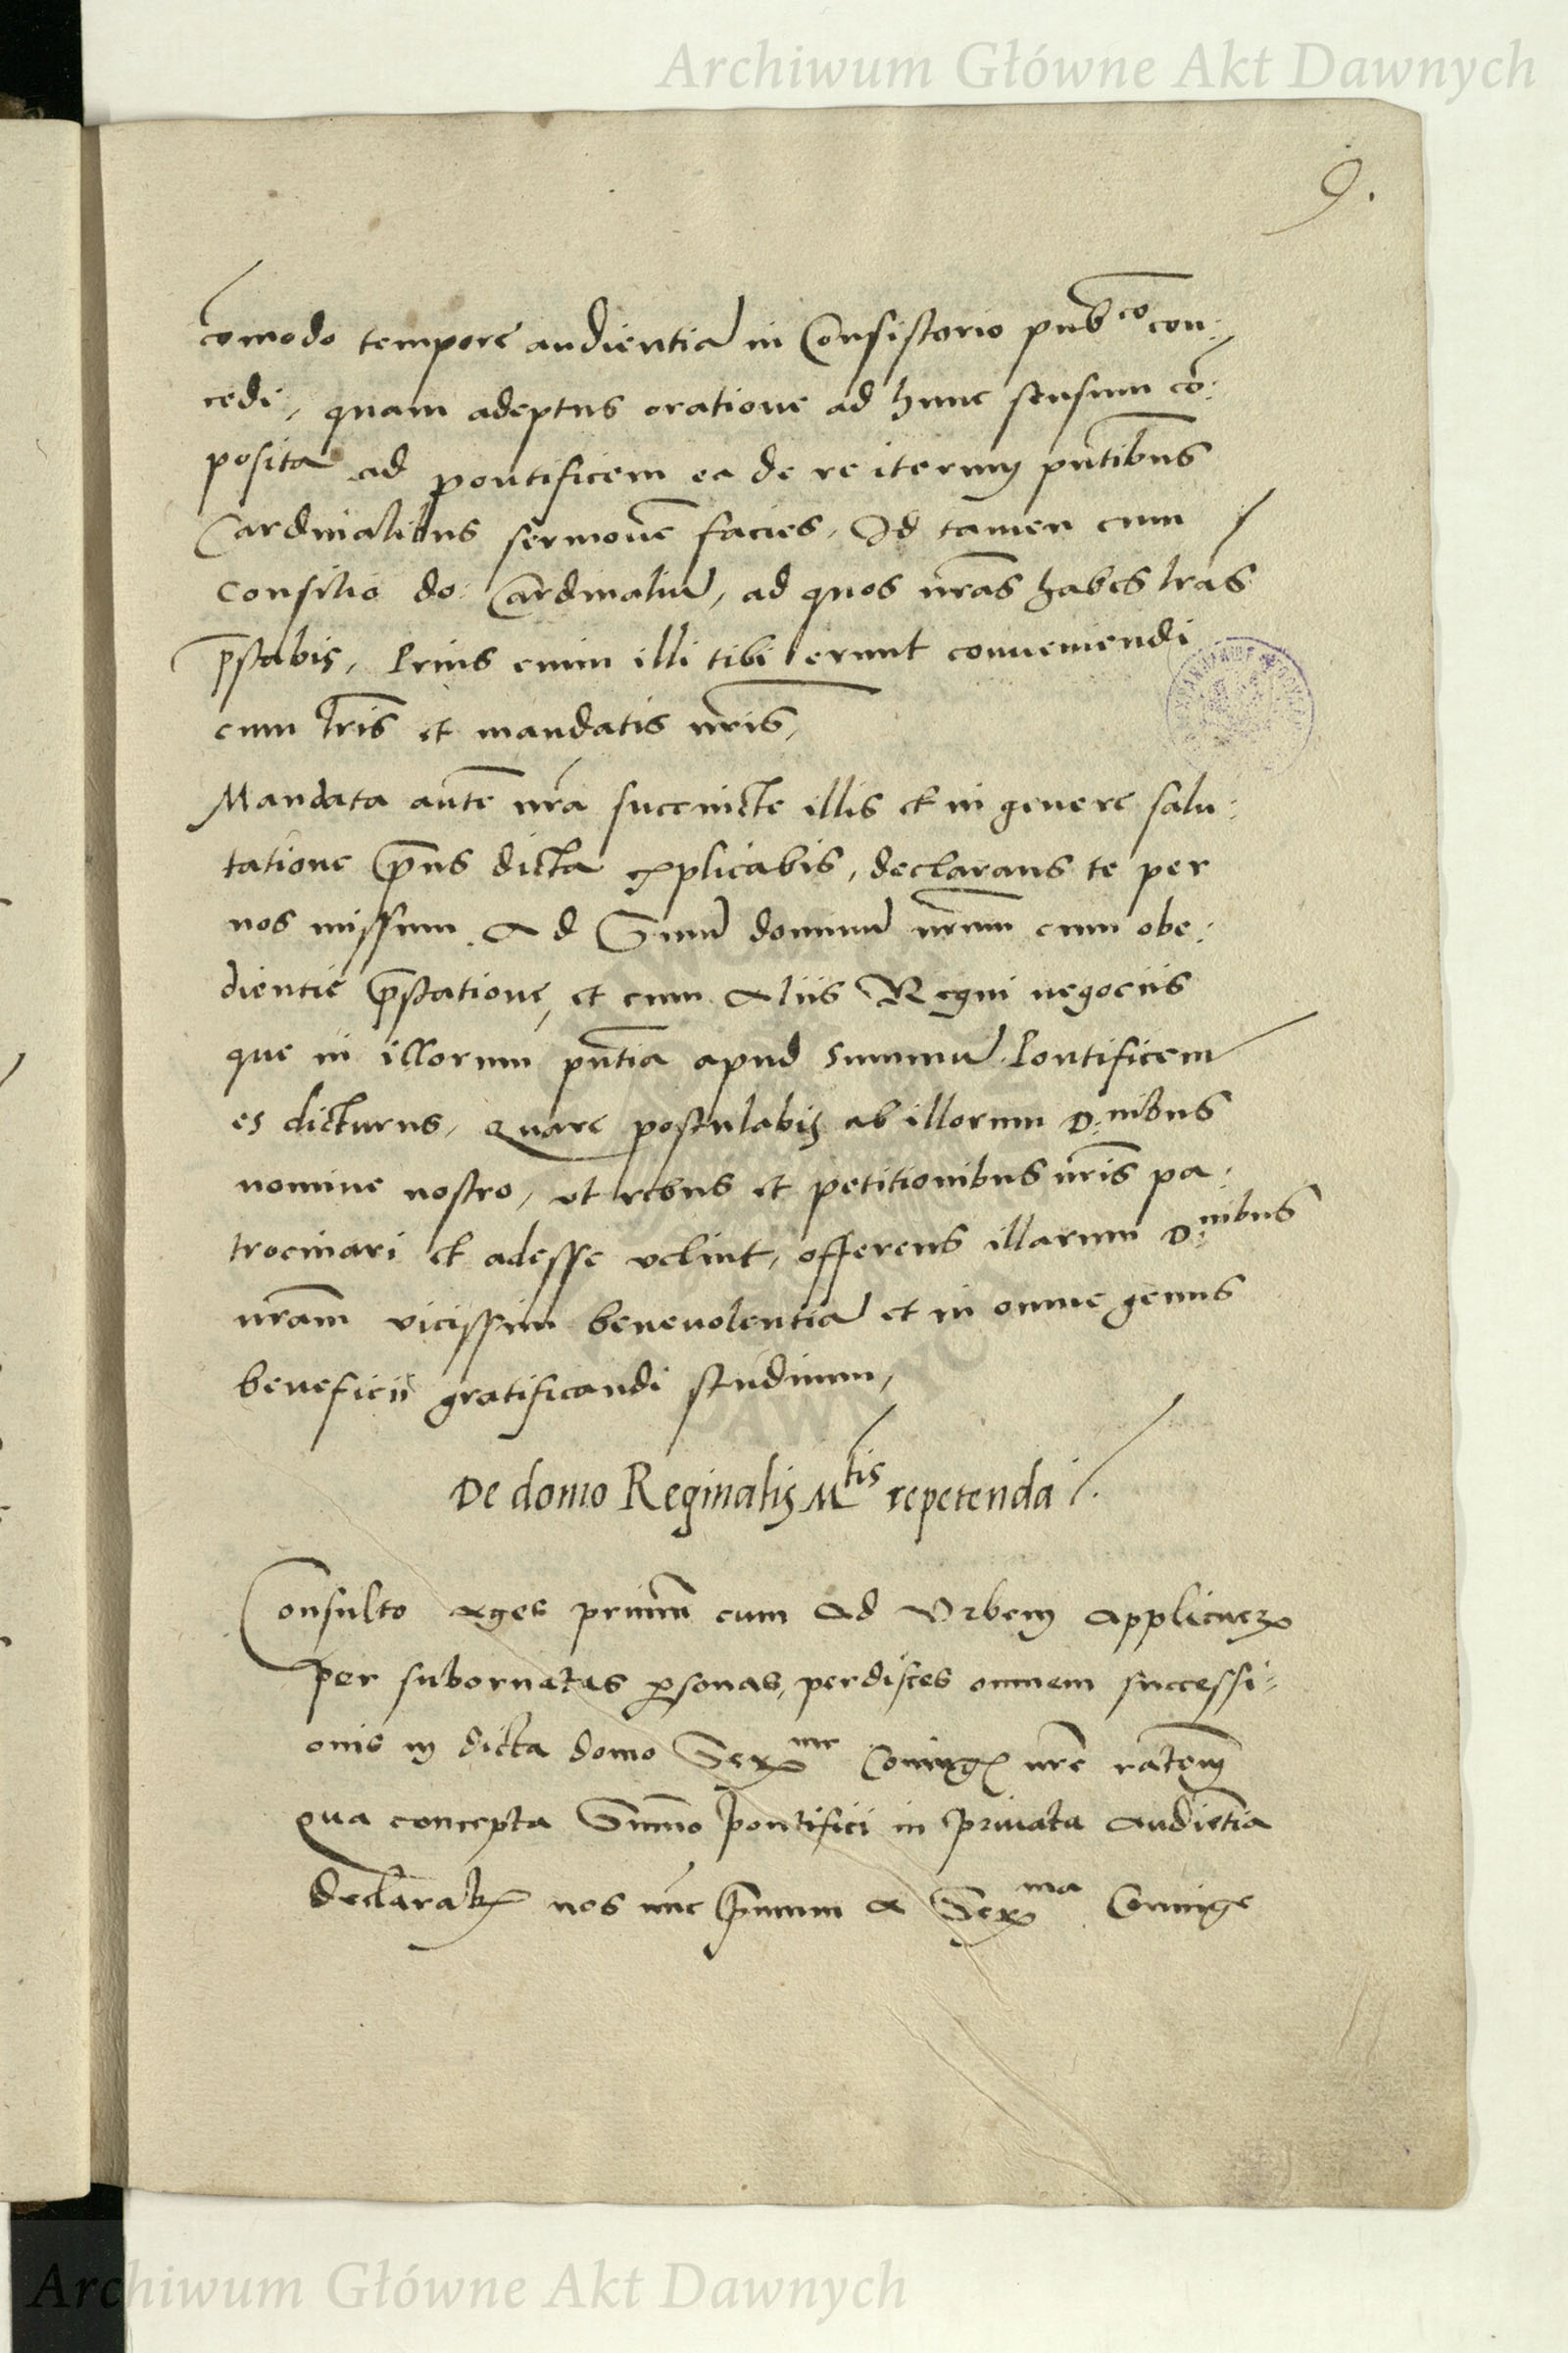 Archiwum Główne Akt Dawnych
9.
cōmodo tempore audientiā in Consistorio pubco con:
cedi, quam adeptus oratione ad hunc sensum cō:
posita ad pontificem ea de re iterum pn̄tibus
Cardinalibus sermonē facies. Id tamen cum
consilio do: Cardinaliū, ad quos nr̄as habes lr̄as
p̄stabis, Prius enim illi tibi erunt conueniendi
cum lr̄is et mandatis nr̄is,
Mandata autē nr̄a succincte illis et in genere salu:
tatione p̄us dicta explicabis, declarans te per
nos missum Ad Smū dominū nr̄um cum obe:
dientie p̄statione, et cum Aliis Regni negociis
que in illorum pn̄tia apud summū Pontificem
es dicturus, Quare postulabis ab illorum D:nibus
nomine nostro, vt rebus et petitionibus nr̄is pa:
trocinari et adesse velint, offerens illarum D:nibus
nr̄am vicissim beneuolentiā et in omne genus
beneficii gratificandi studium,
De domo Reginalis Mtis repetenda
Consulto ages primū cum Ad Vrbem Applicuer
per subornatas p̱sonas, perdisces omnem successi:
onis in dicta domo Serme Coniugis nr̄e ratōem
qua concepta Summo pontifici in priuata Audiētia
declarabis nos nūc primum A Serma Coniuge
Archiwum Główne Akt Dawnych